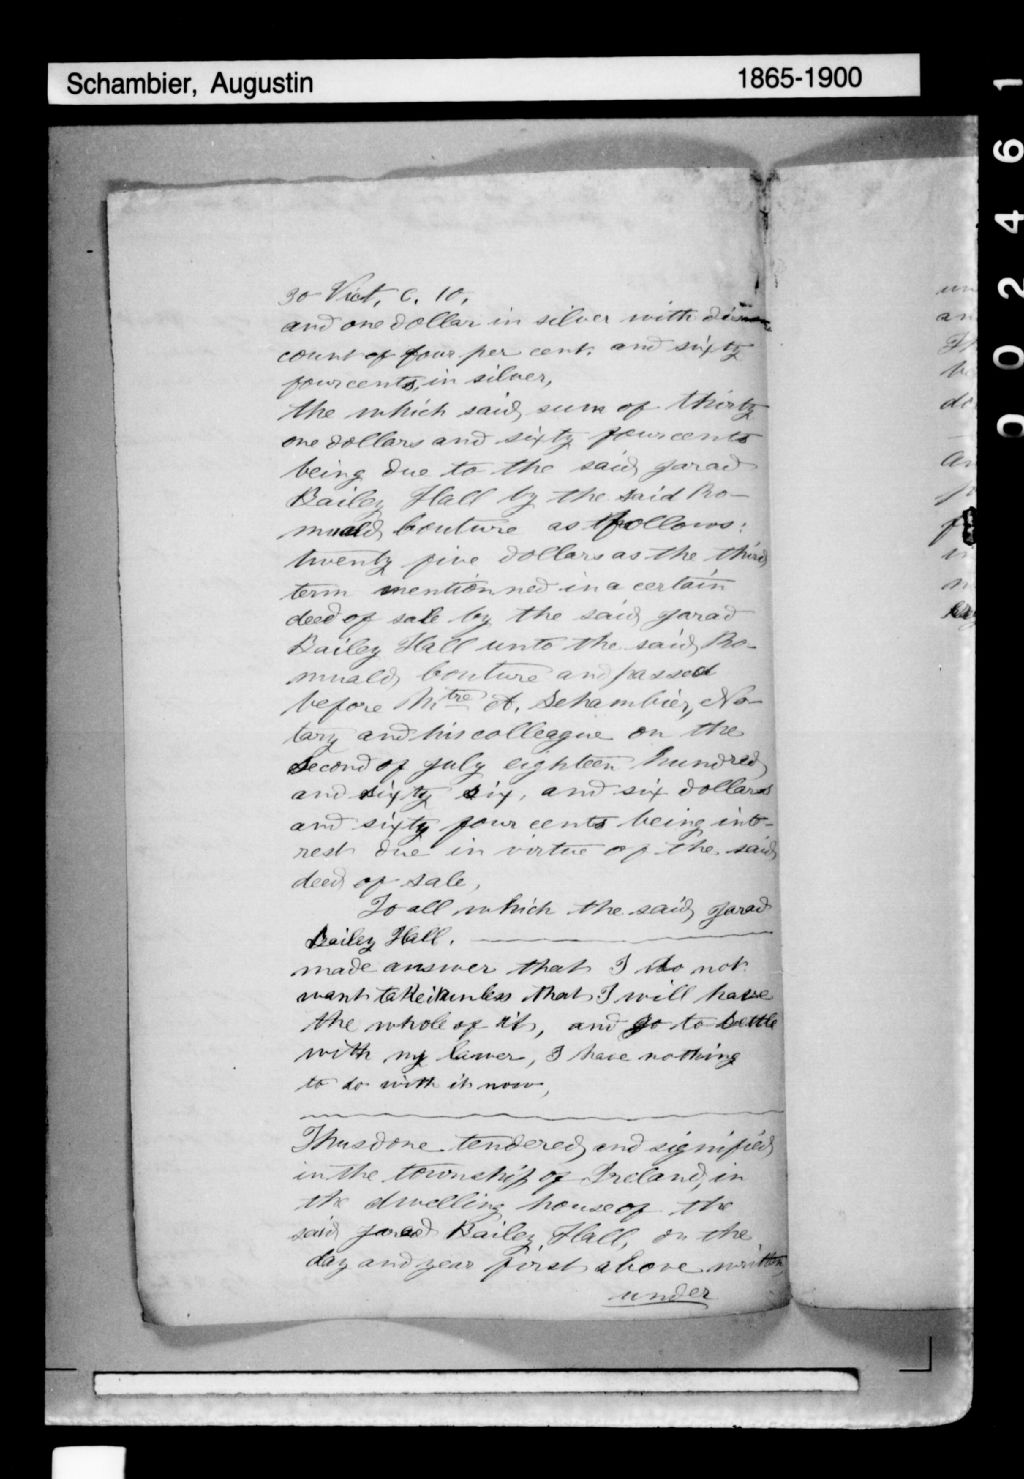 Schambier, Augustin 1865-1900
002461
30 Vict, C. 10,
and one dollar in silver with dis
count of four per cent. and sixty
four cents, in silver,
the which said sum of thirty
one dollars and sixty four cents
being due to the said Jarad
Bailey Hall by the said Ro-
muald bouture as follows:
twenty five dollars as the third
term mentionned in a certain
deed of sale by the said Jarad
Bailey Hall unto the said Ro-
muald bouture and passed
before Mtre A. Schambier, No-
tary and his colleague on the
second of July eighteen hundred
and sixty six, and six dollars
and sixty four cents being int-
rest due in virtue of the said
deed of sale,
To all which the said Jarad
Bailey Hall.
made answer that I do not
want take it unless that I will have
the whole of it, and go to settle
with my lawer, I have nothing
to do with it now,
Thus done tendered and signified
in the township of Ireland, in
the dwelling house of the
said Jarad Bailey Hall, on the
day and year first above written
under